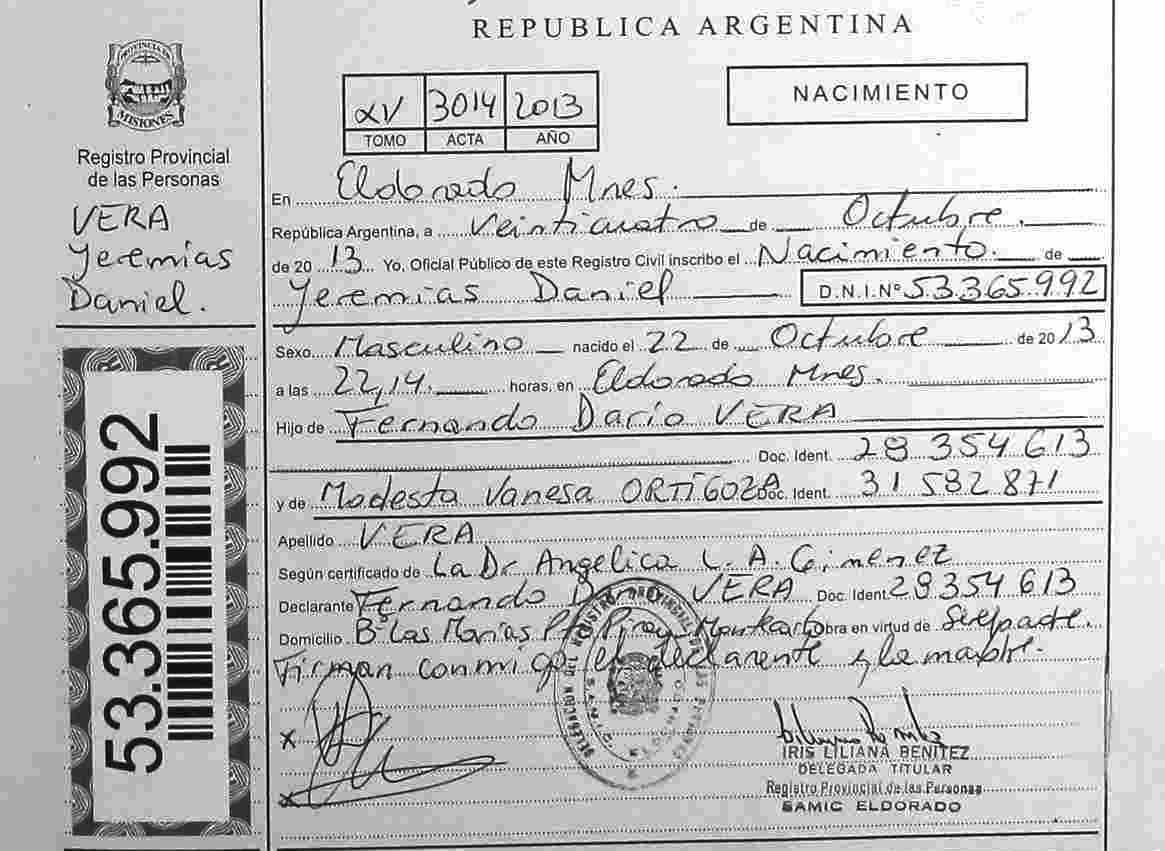 REPUBLICA ARGENTINA
PROVINCIA DE
MISIONES
Registro Provincial
de las Personas
VERA
Yeremías
Daniel.
53.365.992
XV 3014 2013
TOMO ACTA AÑO
NACIMIENTO
En Eldorado Mnes.
República Argentina, a Veinticuatro de Octubre.
de 20 13 Yo, Oficial Público de este Registro Civil inscribo el Nacimiento. de
Yeremias Daniel D.N.I.Nº 53.365.992
Sexo Masculino nacido el 22 de Octubre de 20 13
a las 22,14. horas, en Eldorado Mnes.
Hijo de Fernando Dario VERA
Doc. Ident. 28 354 613
y de Modesta Vanesa ORTIGOZA Doc. Ident. 31 582 871
Apellido VERA
Según certificado de La Dr Angelica L. A. Gimenez
Declarante Fernando VERA Doc. Ident. 28 354 613
Domicilio Bº Las Marías Pto Piray Montecarlo obra en virtud de Ser parte.
Firman conmigo el declarente y la madre.
X
X
IRIS LILIANA BENITEZ
DELEGADA TITULAR
Registro Provincial de las Personas
SAMIC ELDORADO